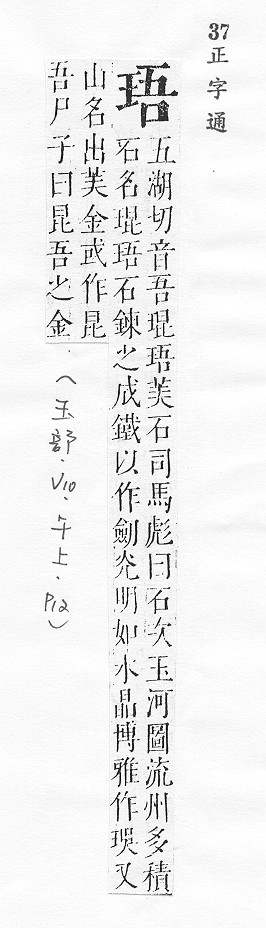 37
正字通
珸
五湖切音吾琨珸美石司馬彪曰石次玉河圖流州多積
石名琨珸石鍊之成鐵以作劍光明如水晶博雅作珢又
山名出美金或作昆
吾尸子曰昆吾之金
(玉部.V10.午上.P12)